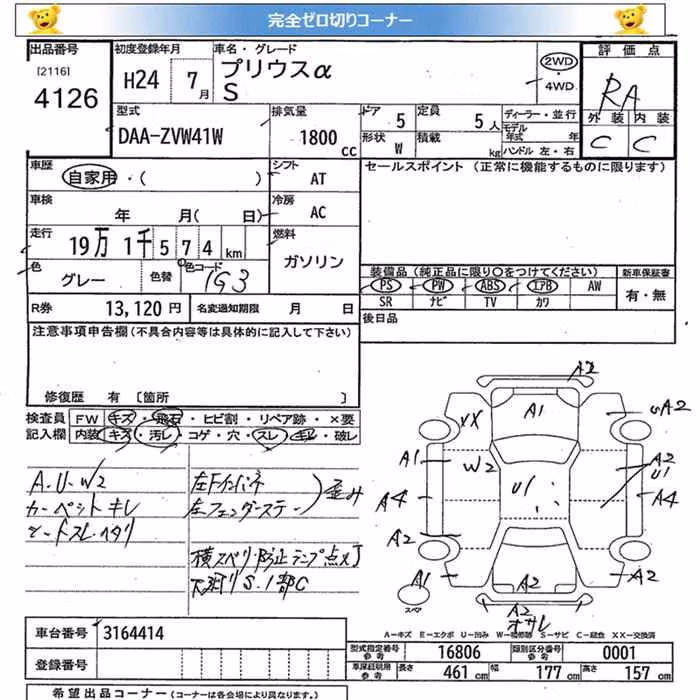 完全ゼロ切りコーナー
出品番号
[2116]
4126
初度登録年月
H24 7月
車名・グレード
プリウスα
S
2WD
・
4WD
評価点
RA
外装 内装
C C
型式
DAA-ZVW41W
排気量
1800 cc
ドア 5
定員 5人
形状 W
積載 kg
ディーラー・並行
モデル年式 年
ハンドル 左・右
車歴
自家用・( )
シフト
AT
セールスポイント (正常に機能するものに限ります)
車検
年 月( 日)
冷房
AC
走行
19万1千574km
燃料
ガソリン
色
グレー
色替
色コード
1G3
装備品(純正品に限り○をつけてください)
新車保証書
PS PW ABS エアB AW
SR ナビ TV カワ
有・無
R券 13,120円
名変通知期限 月 日
後日品
注意事項申告欄(不具合内容等は具体的に記入して下さい)
修復歴 有 [箇所 ]
検査員記入欄
FW キズ・飛石・ヒビ割・リペア跡・×要
内装 キズ・汚レ・コゲ・穴・スレ・キレ・破レ
A.U.W2
カーペットキレ
シートスレ・ヘタリ
左Fインパネ
左フェンダーステー
歪み
横スベリ防止ランプ点灯
下廻りS.1部C
A2
A1
XX
A2
A1
W2
U1
A2
U1
A4
A4
A2
A1
A2
A2
スペア
A2
オサレ
A－キズ E－エクボ U－凹み W－補修跡 S－サビ C－腐食 XX－交換済
車台番号 3164414
登録番号
型式指定番号
参考
16806
類別区分番号
参考
0001
車庫証明用
参考
長さ 461cm
幅 177cm
高さ 157cm
希望出品コーナー(コーナーは各会場により異なります。)